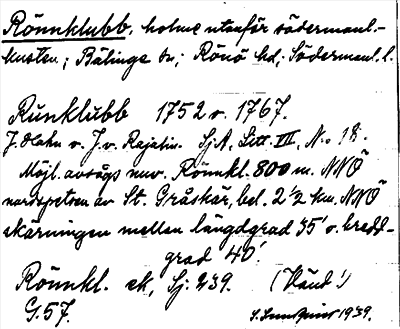 Rönnklubb, holme utanför södermanl.-
kusten; Bälinge sn; Rönö hd; Södermanl. l.
Rünklubb 1752 o. 1767.
J. Hahn o. J. v. Rajalin. SjA, Litt. III, No 18.
Möjl. avsågs nuv. Rönnkl. 800 m. NNÖ
nordspetsen av St. Gråskär, bel. 2 ½ km. NNÖ
skärningen mellan längdgrad 35' o. bredd-
grad 40'.
Rönnkl. ek, Sj: 239. (Vänd!)
G. 57. 1939.